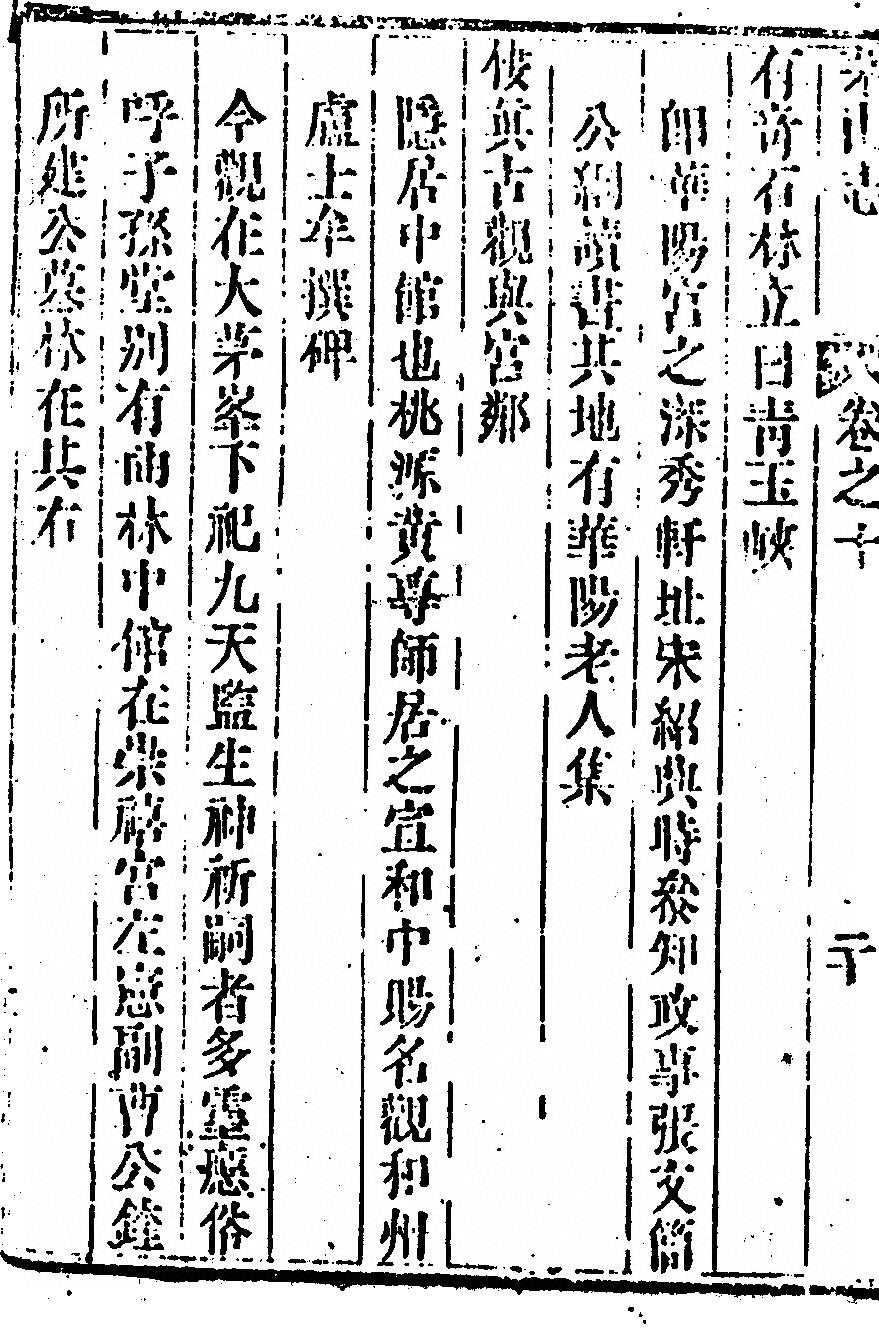 茅山志 卷之十 二十
有奇石林立曰青玉峽
即華陽宮之深秀軒址宋紹興時叅知政事張文簡
公綱讀書其地有華陽老人集
俊其古觀與宮鄰
隱居中館也桃源黃尊師居之宣和中賜名觀和州
盧士牟撰碑
今觀在大茅峯下祀九天監生神祈嗣者多靈應俗
呼子孫堂別有曲林中館在崇禧宮左憲副曹公鏜
所建公墓亦在其右